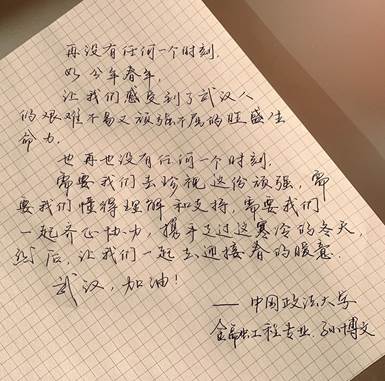 再没有任何一个时刻,
如今年春年,
让我们感受到了武汉人
的艰难不易又顽强不屈的旺盛生
命力.
也再也没有任何一个时刻,
需要我们去珍视这份顽强,需
要我们懂得理解和支持,需要我们
一起齐心协力,携手走过这寒冷的冬天,
然后,让我们一起去迎接春的暖意.
武汉,加油!
——中国政法大学
金融工程专业,孙博文